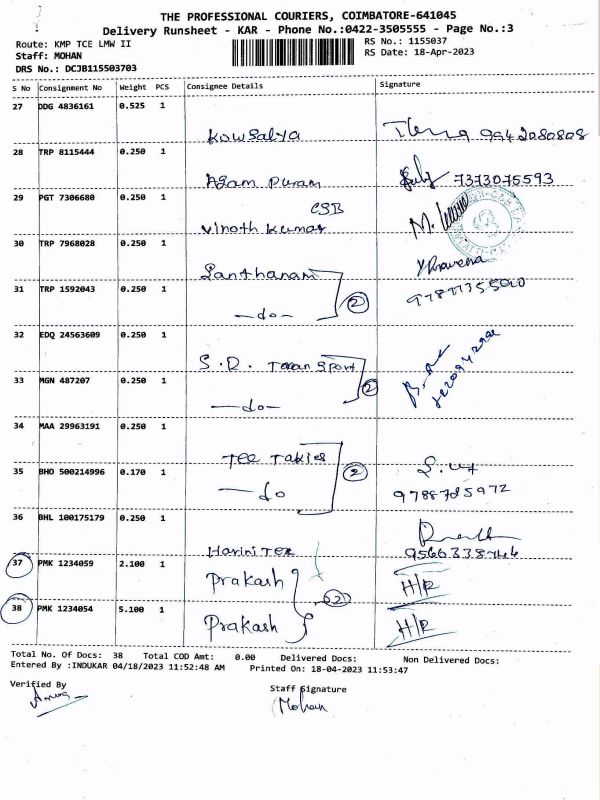 THE PROFESSIONAL COURIERS, COIMBATORE-641045
Delivery Runsheet - KAR - Phone No.:0422-3505555 - Page No.:3
Route: KMP TCE LMW II
Staff: MOHAN
DRS No.: DCJB115503703
RS No.: 1155037
RS Date: 18-Apr-2023
S No Consignment No Weight PCS Consignee Details Signature
27 DDG 4836161 0.525 1
Kowsalya 9942080808
28 TRP 8115444 0.250 1
Agam Puram 7373075593
29 PGT 7306680 0.250 1
CSB
Vinoth Kumar M.
30 TRP 7968028 0.250 1
Santhanam
31 TRP 1592043 0.250 1
-do- 2
32 EDQ 24563609 0.250 1
S.D. Texan Sport
33 MGN 487207 0.250 1
-do- 2
34 MAA 29963191 0.250 1
Tee Takies
35 BHO 500214996 0.170 1
-do 2 9788785972
36 BHL 100175179 0.250 1
Harini Tex
37 PMK 1234059 2.100 1
Prakash H/R
38 PMK 1234054 5.100 1
Prakash 2 H/R
Total No. Of Docs: 38 Total COD Amt: 0.00 Delivered Docs: Non Delivered Docs:
Entered By :INDUKAR 04/18/2023 11:52:48 AM Printed On: 18-04-2023 11:53:47
Verified By
Staff Signature
Mohan